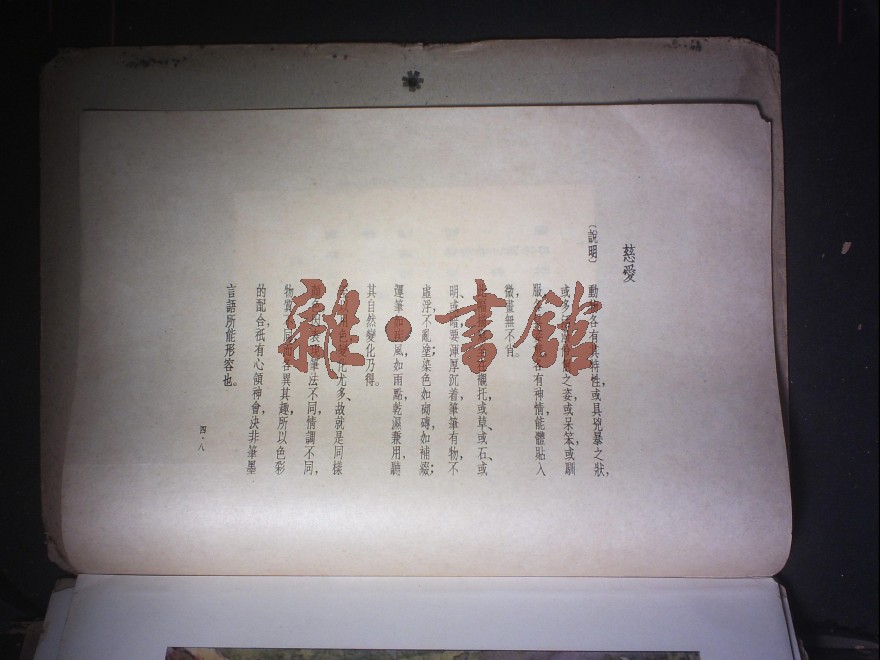 慈愛
〔說明〕
動物各有其特性,或具兇暴之狀,
或多之姿,或呆笨、或馴
服各有神情,能體貼入
微,盡無不肖。
襯托,或草、或石、或
明、或暗,要渾厚沉着,筆筆有物,不
虛浮、不亂塗;染色如砌磚,如補綴;
運筆如風,如雨點,乾濕兼用,聽
其自然變化乃得。
色變化尤多、故就是同樣
表出筆法不同,情調不同,
物質不同而各異其趣,所以色彩
的配合,祇有心領神會,決非筆墨
言語所能形容也。
四·八
雜·書館